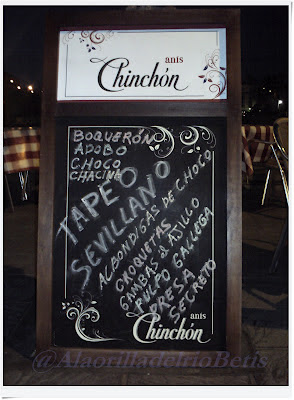 anis
Chinchón
BOQUERÓN
ADOBO
CHOCO
CHACINA
TAPEO
SEVILLANO
ALBONDIGAS DE CHOCO
CROQUETAS
GAMBAS al AJILLO
PULPO GALLEGA
PRESA
SECRETO
anis
Chinchón
@AlaorilladelrioBetis